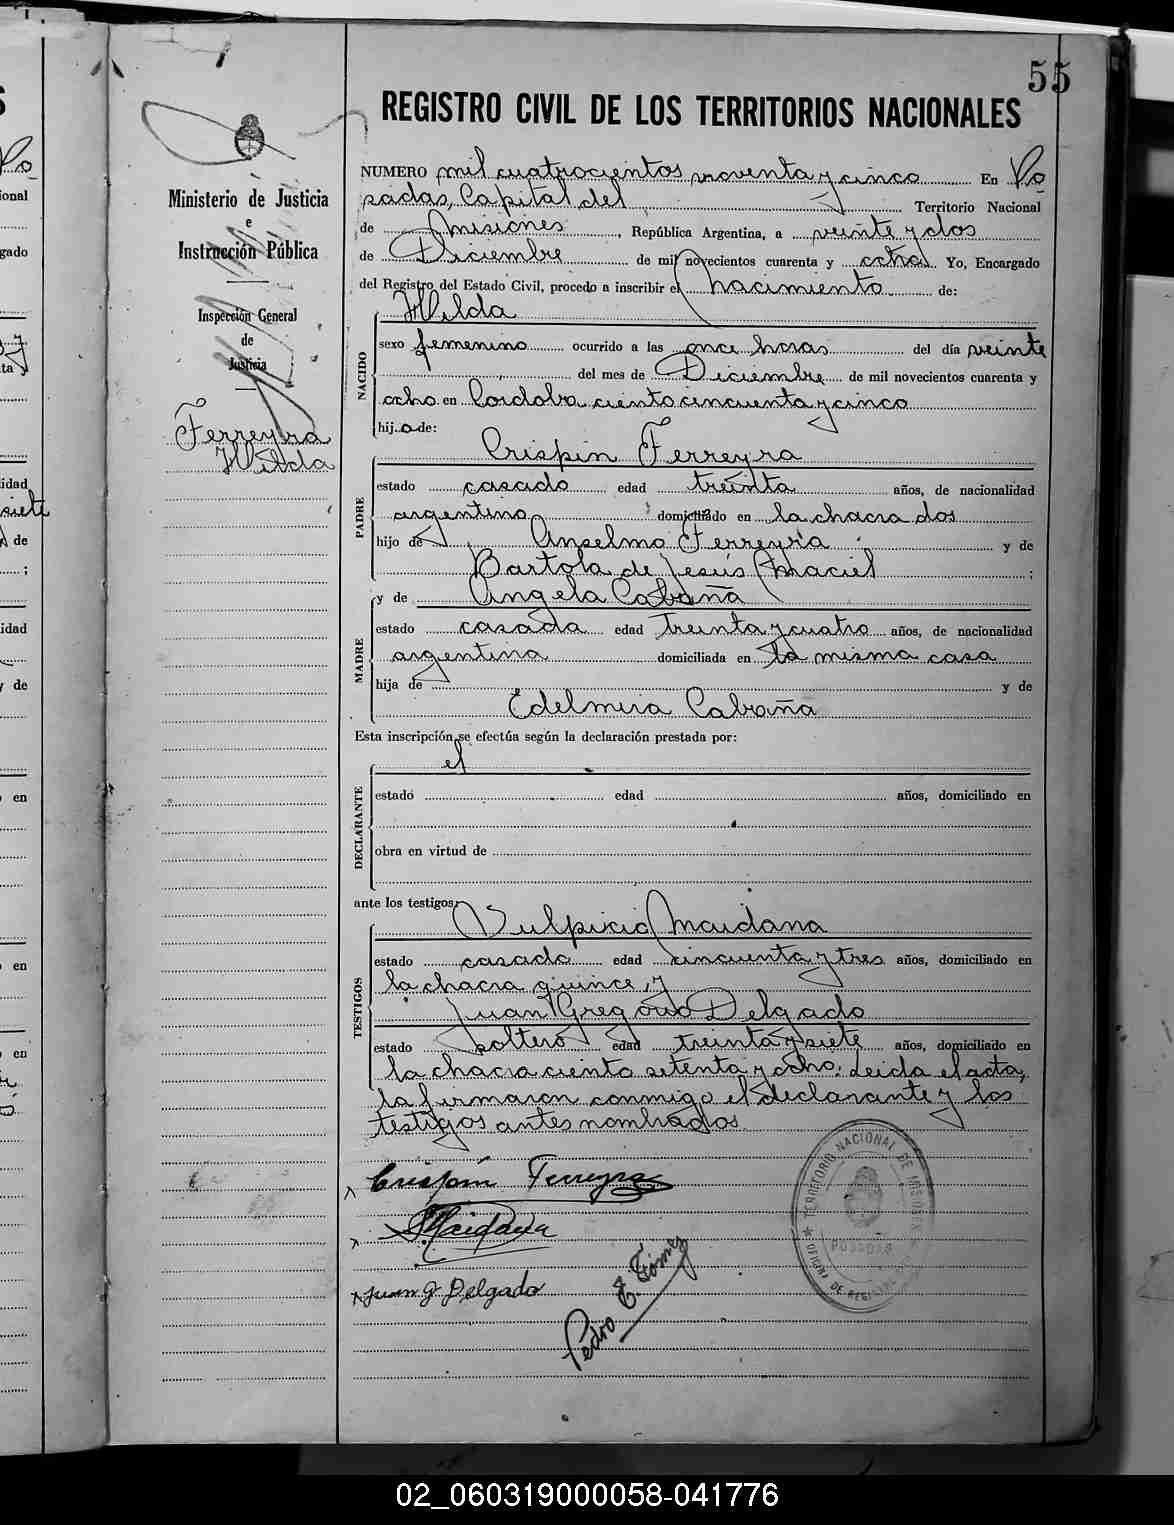 55
REGISTRO CIVIL DE LOS TERRITORIOS NACIONALES
Ministerio de Justicia
e
Instrucción Pública
Inspección General
de
Justicia
Ferreyra
Hilda
NUMERO mil cuatrocientos noventa y cinco En Po
sadas, Capital del Territorio Nacional
de Misiones, República Argentina, a veinte y dos
de Diciembre de mil novecientos cuarenta y ocho Yo, Encargado
del Registro del Estado Civil, procedo a inscribir el nacimiento de:
Hilda
NACIDO
sexo femenino ocurrido a las once horas del día veinte
del mes de Diciembre de mil novecientos cuarenta y
ocho en Cordoba ciento cincuenta y cinco
hij a de:
Crispin Ferreyra
PADRE
estado casado edad treinta años, de nacionalidad
argentino domiciliado en la chacra dos
hijo de Anselmo Ferreyra y de
Bartola de Jesús Maciel ;
y de Angela Cabaña
MADRE
estado casada edad treinta y cuatro años, de nacionalidad
argentina domiciliada en la misma casa
hija de y de
Edelmira Cabaña
Esta inscripción se efectúa según la declaración prestada por:
el
DECLARANTE
estado edad años, domiciliado en
obra en virtud de
ante los testigos:
Vulpicio Maidana
TESTIGOS
estado casado edad cincuenta y tres años, domiciliado en
la chacra quince, y
Juan Gregorio Delgado
estado soltero edad treinta y siete años, domiciliado en
la chacra ciento setenta y ocho. Leida el acta,
la firmaron conmigo el declarante y los
testigos antes nombrados.
Crispín Ferreyra
Maidana
Juan G Delgado
Pedro E. Gómez
TERRITORIO NACIONAL DE MISIONES
POSADAS
02_060319000058-041776